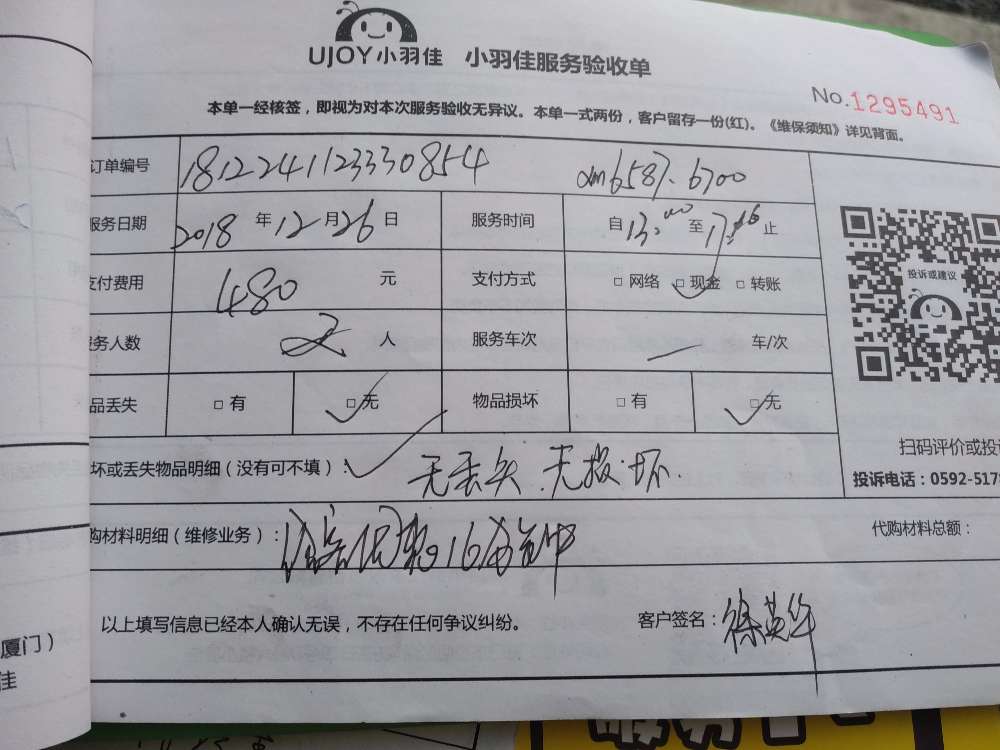 UJOY小羽佳 小羽佳服务验收单
No.1295491
本单一经核签，即视为对本次服务验收无异议。本单一式两份，客户留存一份(红)。《维保须知》详见背面。
订单编号 1812241123330854 6587. 6700
服务日期 2018 年 12 月 26 日 服务时间 自 13:00 至 17:16 止
支付费用 480 元 支付方式 □ 网络 □ 现金 □ 转账
务人数 2 人 服务车次 车/次
品丢失 □ 有 □ 无 物品损坏 □ 有 □ 无
投诉或建议
扫码评价或投诉
投诉电话：0592-517
坏或丢失物品明细（没有可不填）： 无丢失.无损坏
购材料明细（维修业务）： 16分钟
代购材料总额：
以上填写信息已经本人确认无误，不存在任何争议纠纷。 客户签名：徐英华
厦门）
佳